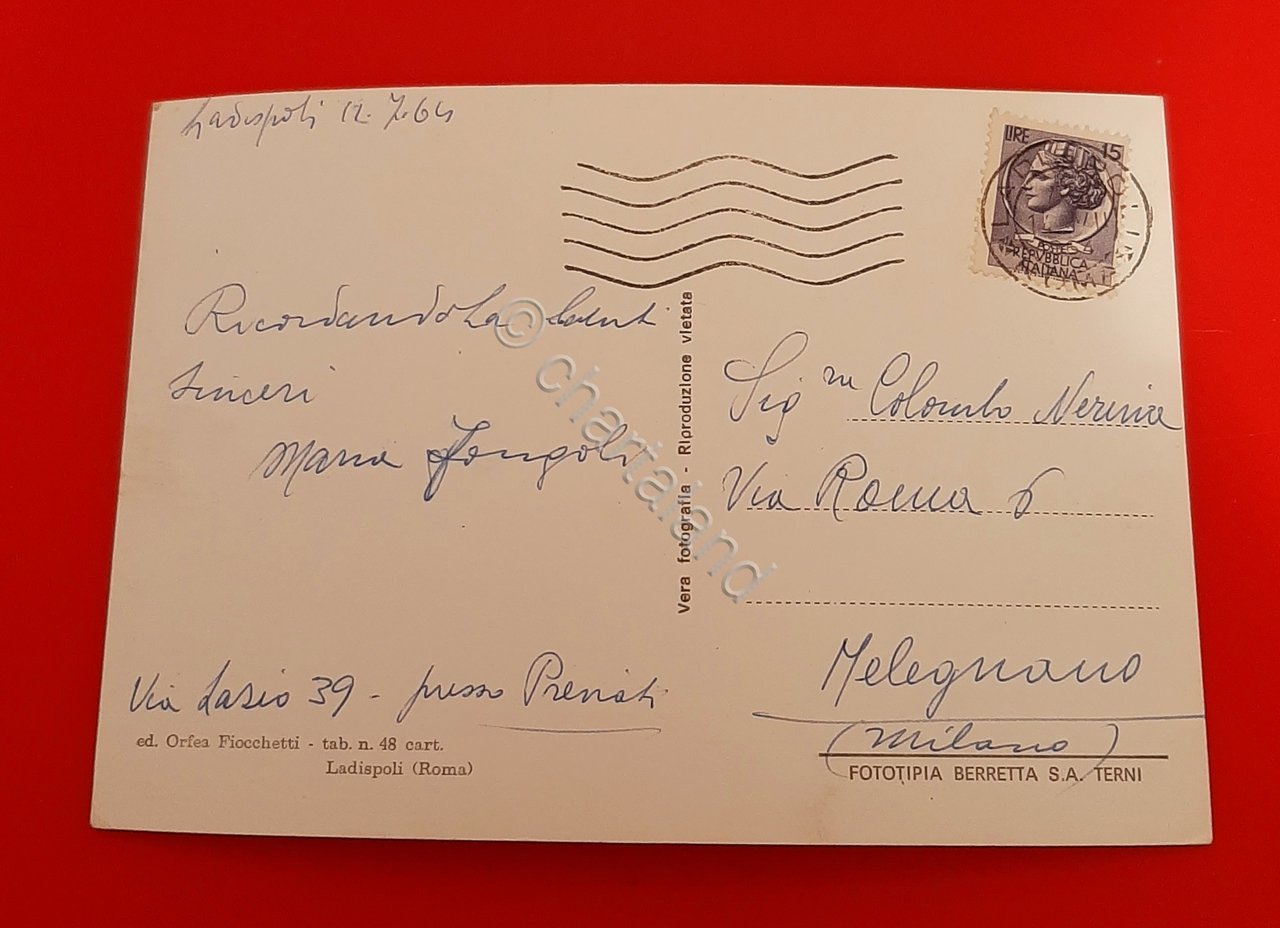 Ladispoli 12.7.64
LIRE 15
POSTE
REPVBBLICA
ITALIANA
Ricordandola
sinceri
Maria
Via Lazio 39 - presso Previati
ed. Orfea Fiocchetti - tab. n. 48 cart.
Ladispoli (Roma)
Vera fotografia - Riproduzione vietata
Sig.ra Colombo Nerina
Via Roma 6
Melegnano
(Milano)
FOTOTIPIA BERRETTA S.A. TERNI
© chartaland